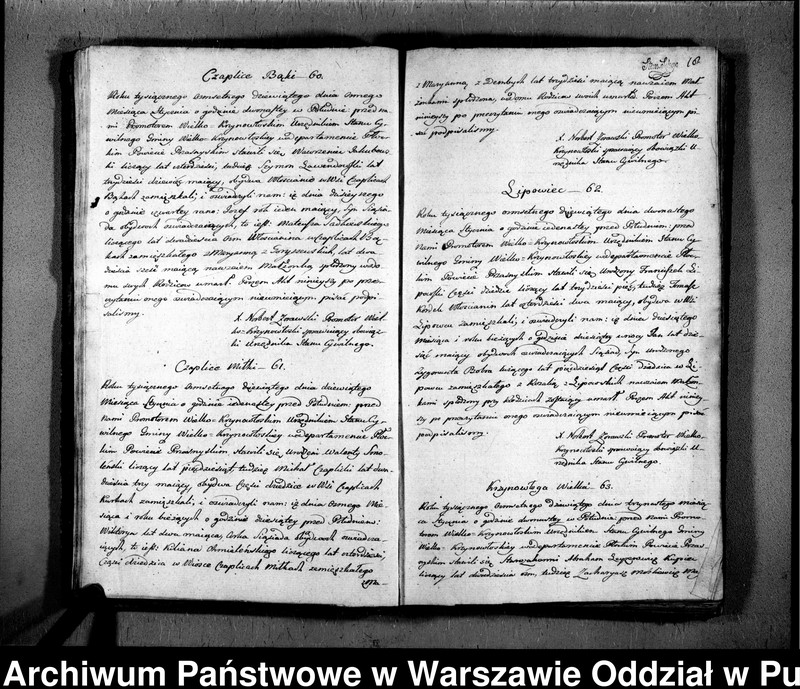 Czaplice Bąki – 60.
Roku tysiącznego osmsetnego dziewiątego dnia osmego
Miesiąca Stycznia o godzinie dwunastey w Południe przed na
mi Promotorem Wielko-Krzynowłoskim Urzędnikiem Stanu Cy
wilnego Gminy Wielko-Krzynowłoskiey w Departamencie Płoc
kim Powiecie Przasnyskim stawili się, Wawrzeniec Jakubow
ski liczący lat czterdzieści, tudzież Szymon Lewandowski lat
trzydzieści dziewięć maiący, obydwa Włościanie w Wsi Czaplicach
Bąkach zamieszkali; i oswiadczyli nam: iż dnia dzisieyszego
o godzinie czwartey rano: Jozef rok ieden maiący, Syn Sąsia
da obydwoch oswiadczaiących, to iest: Mateusza
liczącego lat dwadzieścia Osm Włościanina w Czaplicach Bą
kach zamieszkałego z Maryanną z lat dwa
dzieścia sześć maiącą nazwaiem Małżonką spłodzony w do
mu swych Rodzicow umarł. Poczem Akt ninieyszy po prze
czytaniu onego oswiadczaiącym nieumieiącym pisać podpi
saliśmy.
X. Norbert Zorawski Promotor Wiel
ko-Krzynowłoski sprawuiący obowiąz
ki Urzędnika Stanu Cywilnego.
Czaplice Milki – 61.
Roku tysiącznego Osmsetnego Dziewiątego dnia dziewiątego
Miesiąca Stycznia o godzinie iedenastey przed Południem: przed
Nami Promotorem Wielko-Krzynowłoskim Urzędnikiem Stanu Cy
wilnego Gminy Wielko-Krzynowłoskiey w Departamencie Płoc
kim Powiecie Przasnyskim stawili się, Urodzeni Walenty Smo
leński liczący lat piędziesiąt, tudzież Michał Czaplicki lat dwa
dzieścia trzy maiący, obydwa Części dziedzice w Wsi Czaplicach
Kurkach zamieszkali; i oswiadczyli nam: iż dnia Osmego Mie
siąca i roku bieżących o godzinie dziesiątey przed Południem:
Wiktorya lat dwa maiąca, Corka Sąsiada obydwoch oswiadcza
iących, to iest: Kiliana Chmieleńskiego liczącego lat czterdzieści
Części dziedzica w Wiosce Czaplicach Milkach zamieszkałego
z Maryanną, z lat trzydzieści maiącą nazwaiem Mał
żonkami spłodzona, w domu Rodzicow swoich umarła. Poczem Akt
ninieyszy po przeczytaniu onego oswiadczaiącym nieumieiącym pi
sać podpisaliśmy.
X. Norbert Zorawski Promotor Wielko
Krzynowłoski sprawuiący obowiązki U
rzędnika Stanu Cywilnego.
Lipowiec – 62.
Roku tysiącznego osmsetnego Dziewiątego dnia dwunastego
Miesiąca Stycznia o godzinie iedenastey przed Południem: przed
Nami Promotorem Wielko-Krzynowłoskim Urzędnikiem Stanu Cy
wilnego Gminy Wielko-Krzynowłoskiey w Departamencie Płoc
kim Powiecie Przasnyskim stawili się, Urodzony Franciszek Li
powski Części dziedzic liczący lat trzydzieści pięć, tudzież
Włościanin lat czterdzieści dwa maiący, obydwa w Wsi
Lipowcu zamieszkali; i oswiadczyli nam: iż dnia dziesiątego
Miesiąca i roku bieżących o godzinie dziesiątey Jan lat dzie
sięć maiący obydwoch oswiadczaiących Sąsiad, Syn Urodzonego
Zygmunta Bobra liczącego lat pięćdziesiąt Części dziedzica w Li
powcu zamieszkałego z Rozalią z Lipowskich nazwaiem Małżon
kami spłodzony przy Rodzicach umarł. Poczem Akt niniey
szy po przeczytaniu onego oswiadczaiącym nieumieiącym pisać
podpisaliśmy.
X. Norbert Zorawski Promotor Wielko
Krzynowłoski sprawuiący obowiązki U
rzędnika Stanu Cywilnego.
Krzynowłoga Wielka 63.
Roku tysiącznego Osmsetnego Dziewiątego dnia trzynastego miesią
ca Stycznia o godzinie dwunastey w Południe przed Nami Promo
torem Wielko-Krzynowłoskim Urzędnikiem Stanu Cywilnego Gminy
Wielko-Krzynowłoskiey w Departamencie Płockim Powiecie Przas
nyskim stawili się Starozakonni Abraham
liczący lat dwadzieścia osm, tudzież Zacharyasz Moskowicz
Archiwum Państwowe w Warszawie Oddział w Pu